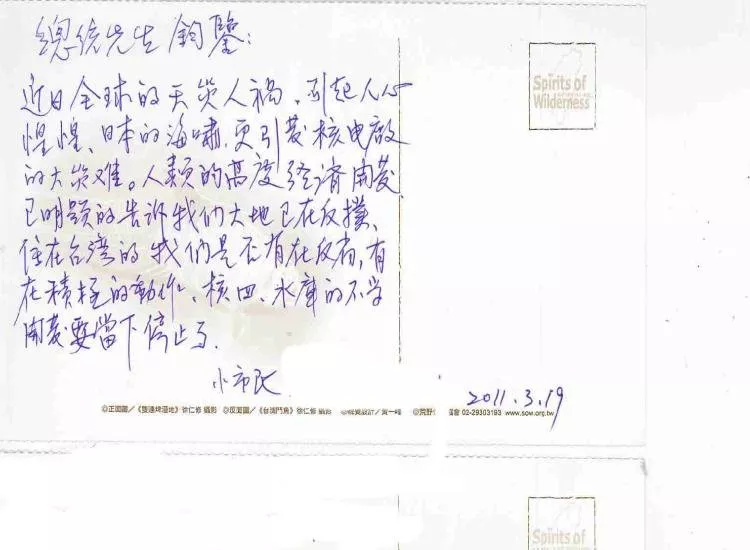 總統先生鈞鑒:
近日全球的天災人禍、引起人心
惶惶、日本的海嘯,更引發核电廠
的大災难。人類的高度经济開發
已明顯的告诉我们大地已在反撲、
住在台湾的我们是否有在反省,有
在積極的動作、核四、水庫的不当
開發要當下停止了.
小市民
2011.3.19
Spirits of
Wilderness
◎正面圖/《雙連埤溼地》徐仁修 攝影 ◎反面圖/《台灣鬥魚》徐仁修 攝影 ◎視覺設計/黃一峰 ◎荒野 協會 02-29303193 www.sow.org.tw
Spirits of